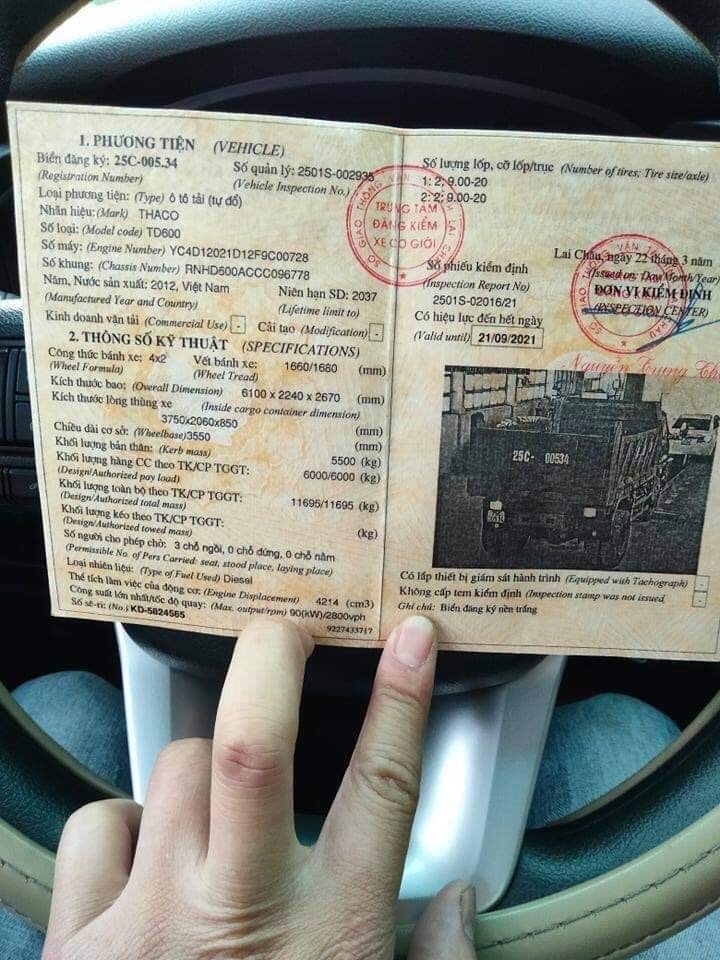 1. PHƯƠNG TIỆN (VEHICLE)
Biển đăng ký: 25C-005.34 Số quản lý: 2501S-002935
(Registration Number) (Vehicle Inspection No.)
Loại phương tiện: (Type) ô tô tải (tự đổ)
Nhãn hiệu: (Mark) THACO
Số loại: (Model code) TD600
Số máy: (Engine Number) YC4D12021D12F9C00728
Số khung: (Chassis Number) RNHD600ACCC096778
Năm, Nước sản xuất: 2012, Việt Nam Niên hạn SD: 2037
(Manufactured Year and Country) (Lifetime limit to)
Kinh doanh vận tải (Commercial Use) - Cải tạo (Modification) -
2. THÔNG SỐ KỸ THUẬT (SPECIFICATIONS)
Công thức bánh xe: 4x2 Vết bánh xe: 1660/1680 (mm)
(Wheel Formula) (Wheel Tread)
Kích thước bao: (Overall Dimension) 6100 x 2240 x 2670 (mm)
Kích thước lòng thùng xe (Inside cargo container dimension)
3750x2060x850 (mm)
Chiều dài cơ sở: (Wheelbase) 3550 (mm)
Khối lượng bản thân: (Kerb mass) 5500 (kg)
Khối lượng hàng CC theo TK/CP TGGT: 6000/6000 (kg)
(Design/Authorized pay load)
Khối lượng toàn bộ theo TK/CP TGGT: 11695/11695 (kg)
(Design/Authorized total mass)
Khối lượng kéo theo TK/CP TGGT: (kg)
(Design/Authorized towed mass)
Số người cho phép chở: 3 chỗ ngồi, 0 chỗ đứng, 0 chỗ nằm
(Permissible No. of Pers Carried: seat, stood place, laying place)
Loại nhiên liệu: (Type of Fuel Used) Diesel
Thể tích làm việc của động cơ: (Engine Displacement) 4214 (cm3)
Công suất lớn nhất/tốc độ quay: (Max. output/rpm) 90(kW)/2800vph
Số sê-ri: (No.) KD-5824565 9227433717
Số lượng lốp, cỡ lốp/trục (Number of tires; Tire size/axle)
1: 2; 9.00-20
2: 2; 9.00-20
SỞ GIAO THÔNG VẬN TẢI LAI CHÂU
TRUNG TÂM
ĐĂNG KIỂM
XE CƠ GIỚI
Lai Châu, ngày 22 tháng 3 năm
(Issued on: Day/Month/Year)
Số phiếu kiểm định ĐƠN VỊ KIỂM ĐỊNH
(Inspection Report No) (INSPECTION CENTER)
2501S-02016/21
Có hiệu lực đến hết ngày
(Valid until) 21/09/2021
Nguyễn Trung
25C 00534
Có lắp thiết bị giám sát hành trình (Equipped with Tachograph) -
Không cấp tem kiểm định (Inspection stamp was not issued
Ghi chú: Biển đăng ký nền trắng